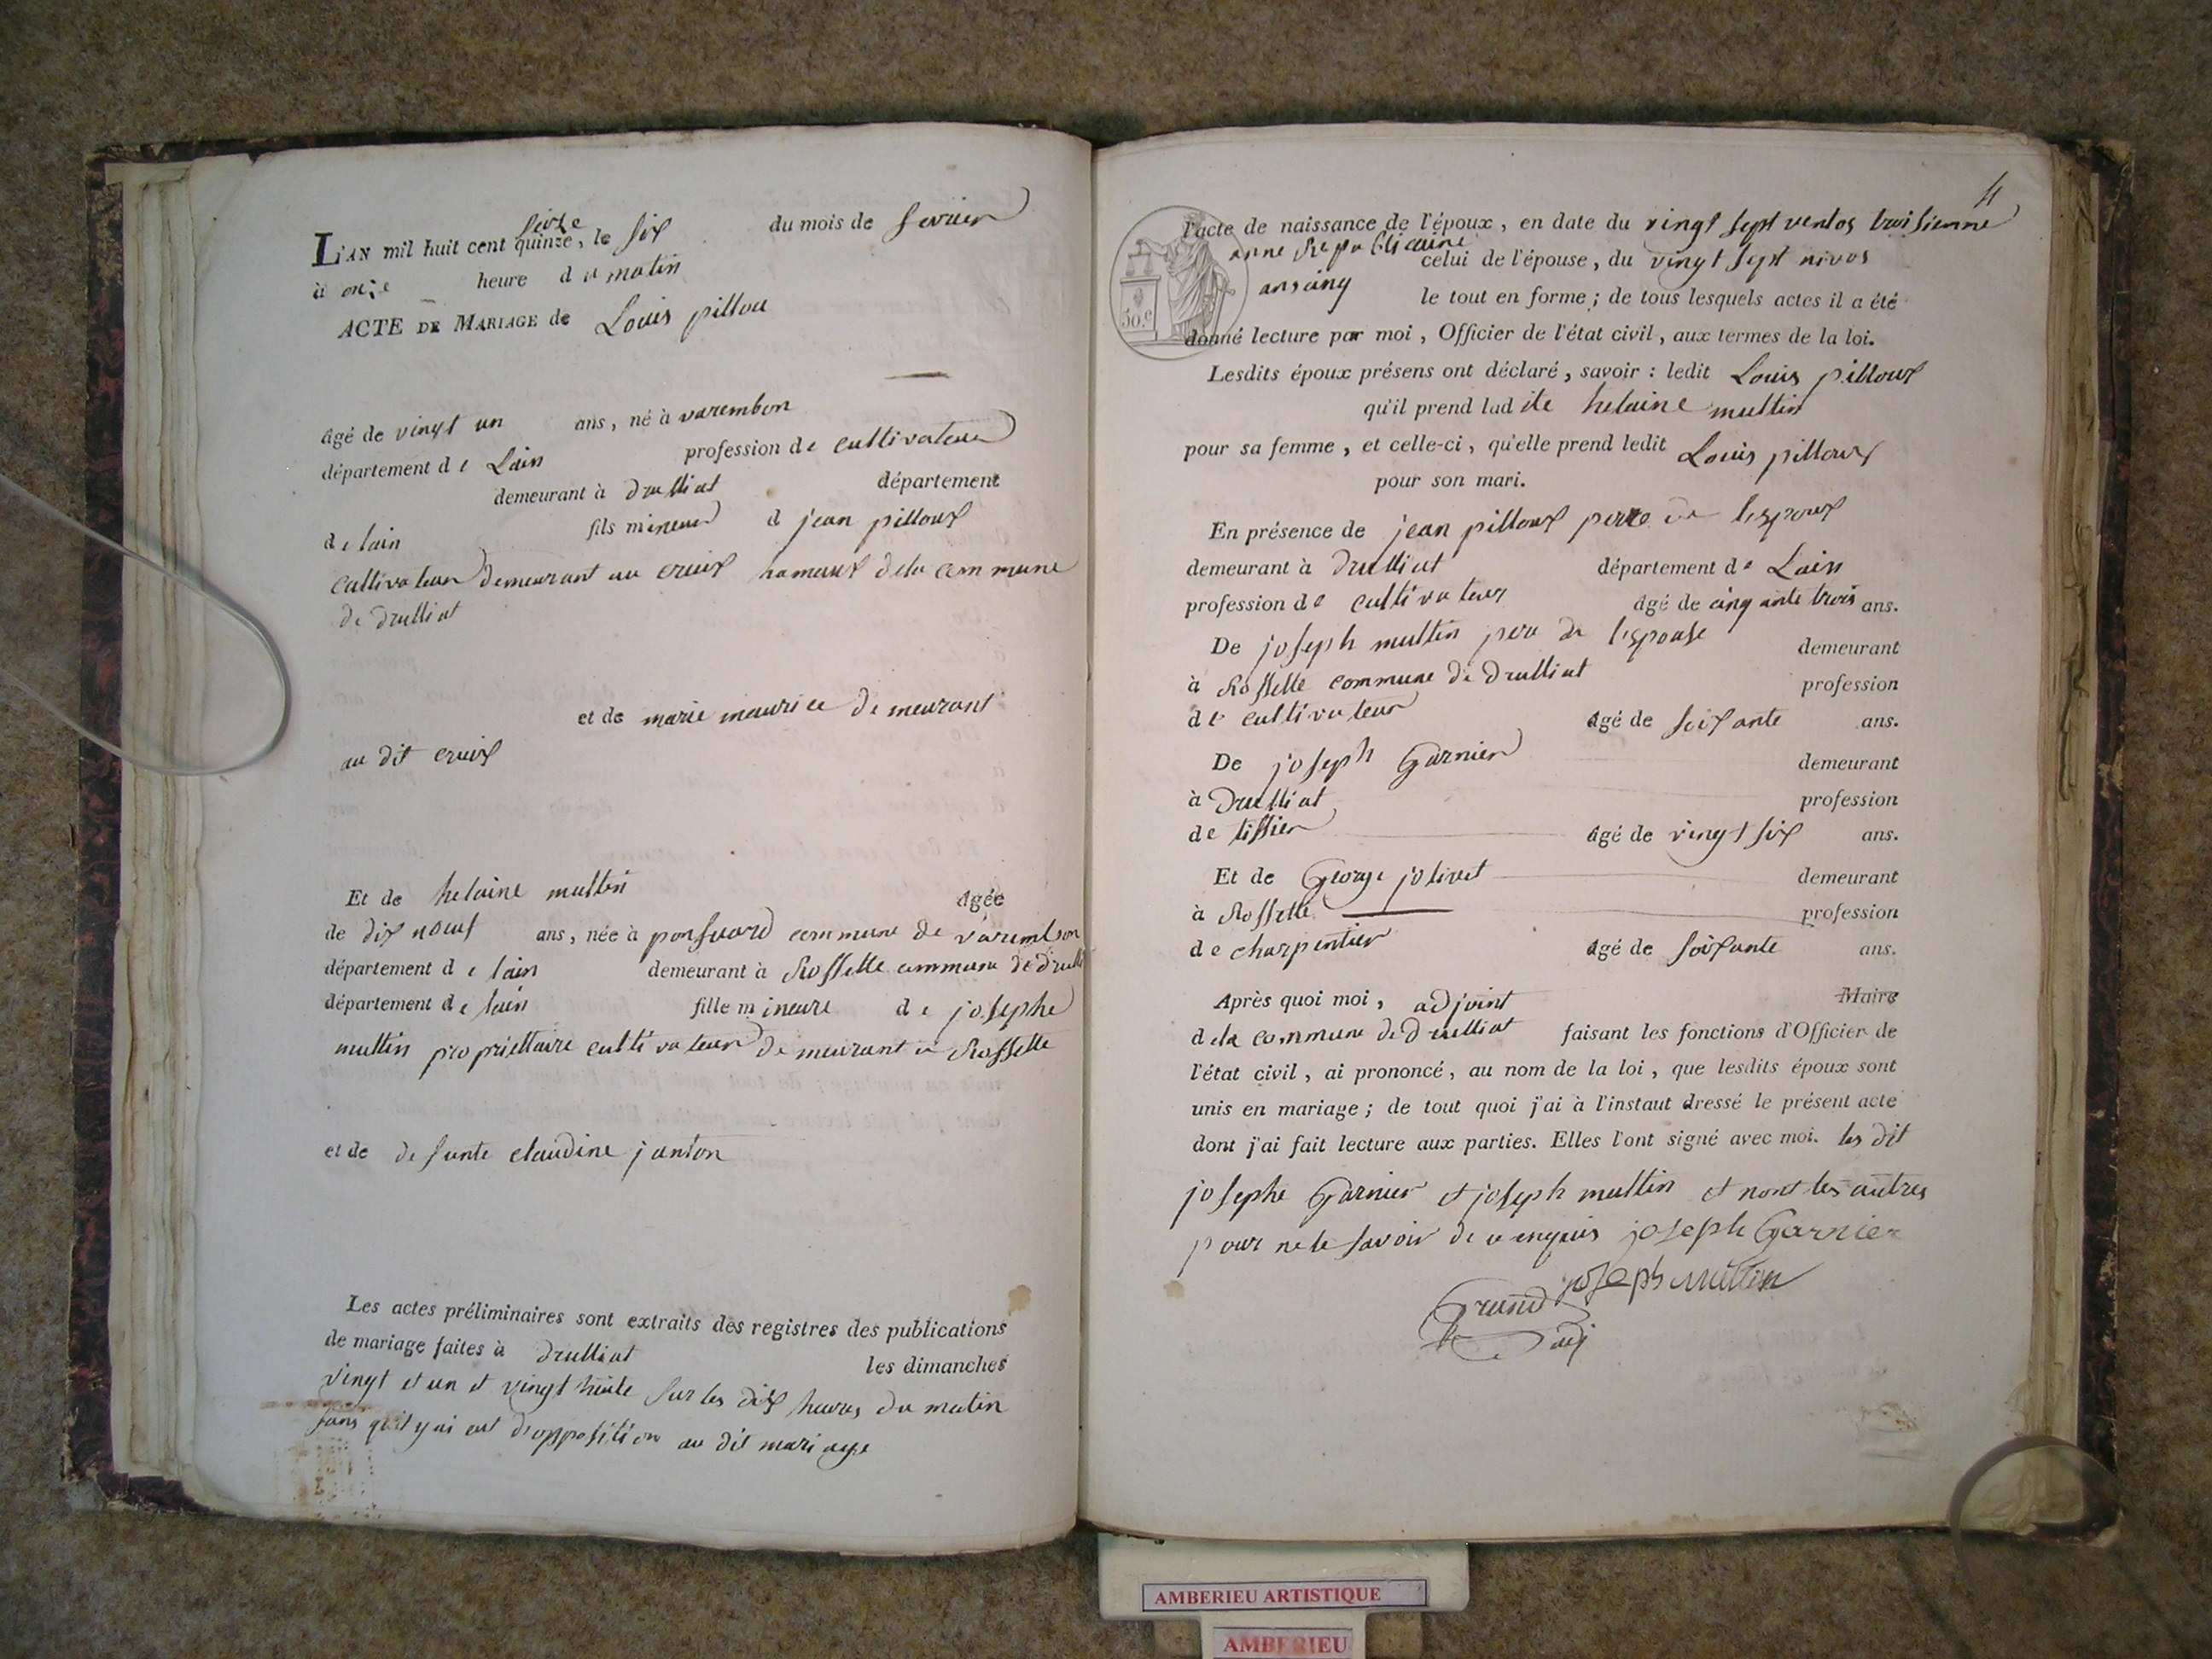 seize
L'AN mil huit cent quinze, le six du mois de fevrier
à onze heure du matin
ACTE DE MARIAGE de Louis pillou
âgé de vingt un ans, né à varembon
département de Lain profession de cultivateur
demeurant à druilliat département
de lain fils mineur d jean pilloux
cultivateur demeurant au cruix hamaux dela commune
de druilliat
et de marie maurice demeurant
au dit cruix
Et de helaine multin âgée
de dix neuf ans, née à ponsuard commune de varembon
département de lain demeurant à Rossette commune de druilli
département de lain fille mineure de josephe
multin propriettaire cultivateur demeurant a Rossette
et de defunte claudine janton
Les actes préliminaires sont extraits des registres des publications
de mariage faites à druilliat les dimanches
vingt et un et vingt huite sur les dix heures du matin
sans quil y ai eut dopposition au dit mariage
4
l'acte de naissance de l'époux, en date du vingt sept ventos troisienne
anne Republicaine celui de l'épouse, du vingt sept nivos
an cinq le tout en forme; de tous lesquels actes il a été
50.c
donné lecture par moi, Officier de l'état civil, aux termes de la loi.
Lesdits époux présens ont déclaré, savoir: ledit Louis pilloux
qu'il prend ladite helaine multin
pour sa femme, et celle-ci, qu'elle prend ledit Louis pilloux
pour son mari.
En présence de jean pilloux perre de lespoux
demeurant à druilliat département de Lain
profession de cultivateur âgé de cinquante trois ans.
De joseph multin pere de lespouse demeurant
à Rossette commune de druilliat profession
de cultivateur âgé de soixante ans.
De joseph Garnier demeurant
à druilliat profession
de tissier âgé de vingt six ans.
Et de George jolivet demeurant
à Rossette profession
de charpentier âgé de soixante ans.
Après quoi moi, adjoint Maire
dela commune de druilliat faisant les fonctions d'Officier de
l'état civil, ai prononcé, au nom de la loi, que lesdits époux sont
unis en mariage; de tout quoi j'ai à l'instaut dressé le présent acte
dont j'ai fait lecture aux parties. Elles l'ont signé avec moi. les dit
josephe Garnier et joseph multin et nont les autres
pour ne le savoir de ce enquis joseph Garnier
joseph multin
Grand
adj
AMBERIEU ARTISTIQUE
AMBERIEU